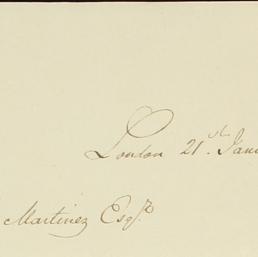 London 21st Janu
Martinez Esqre.